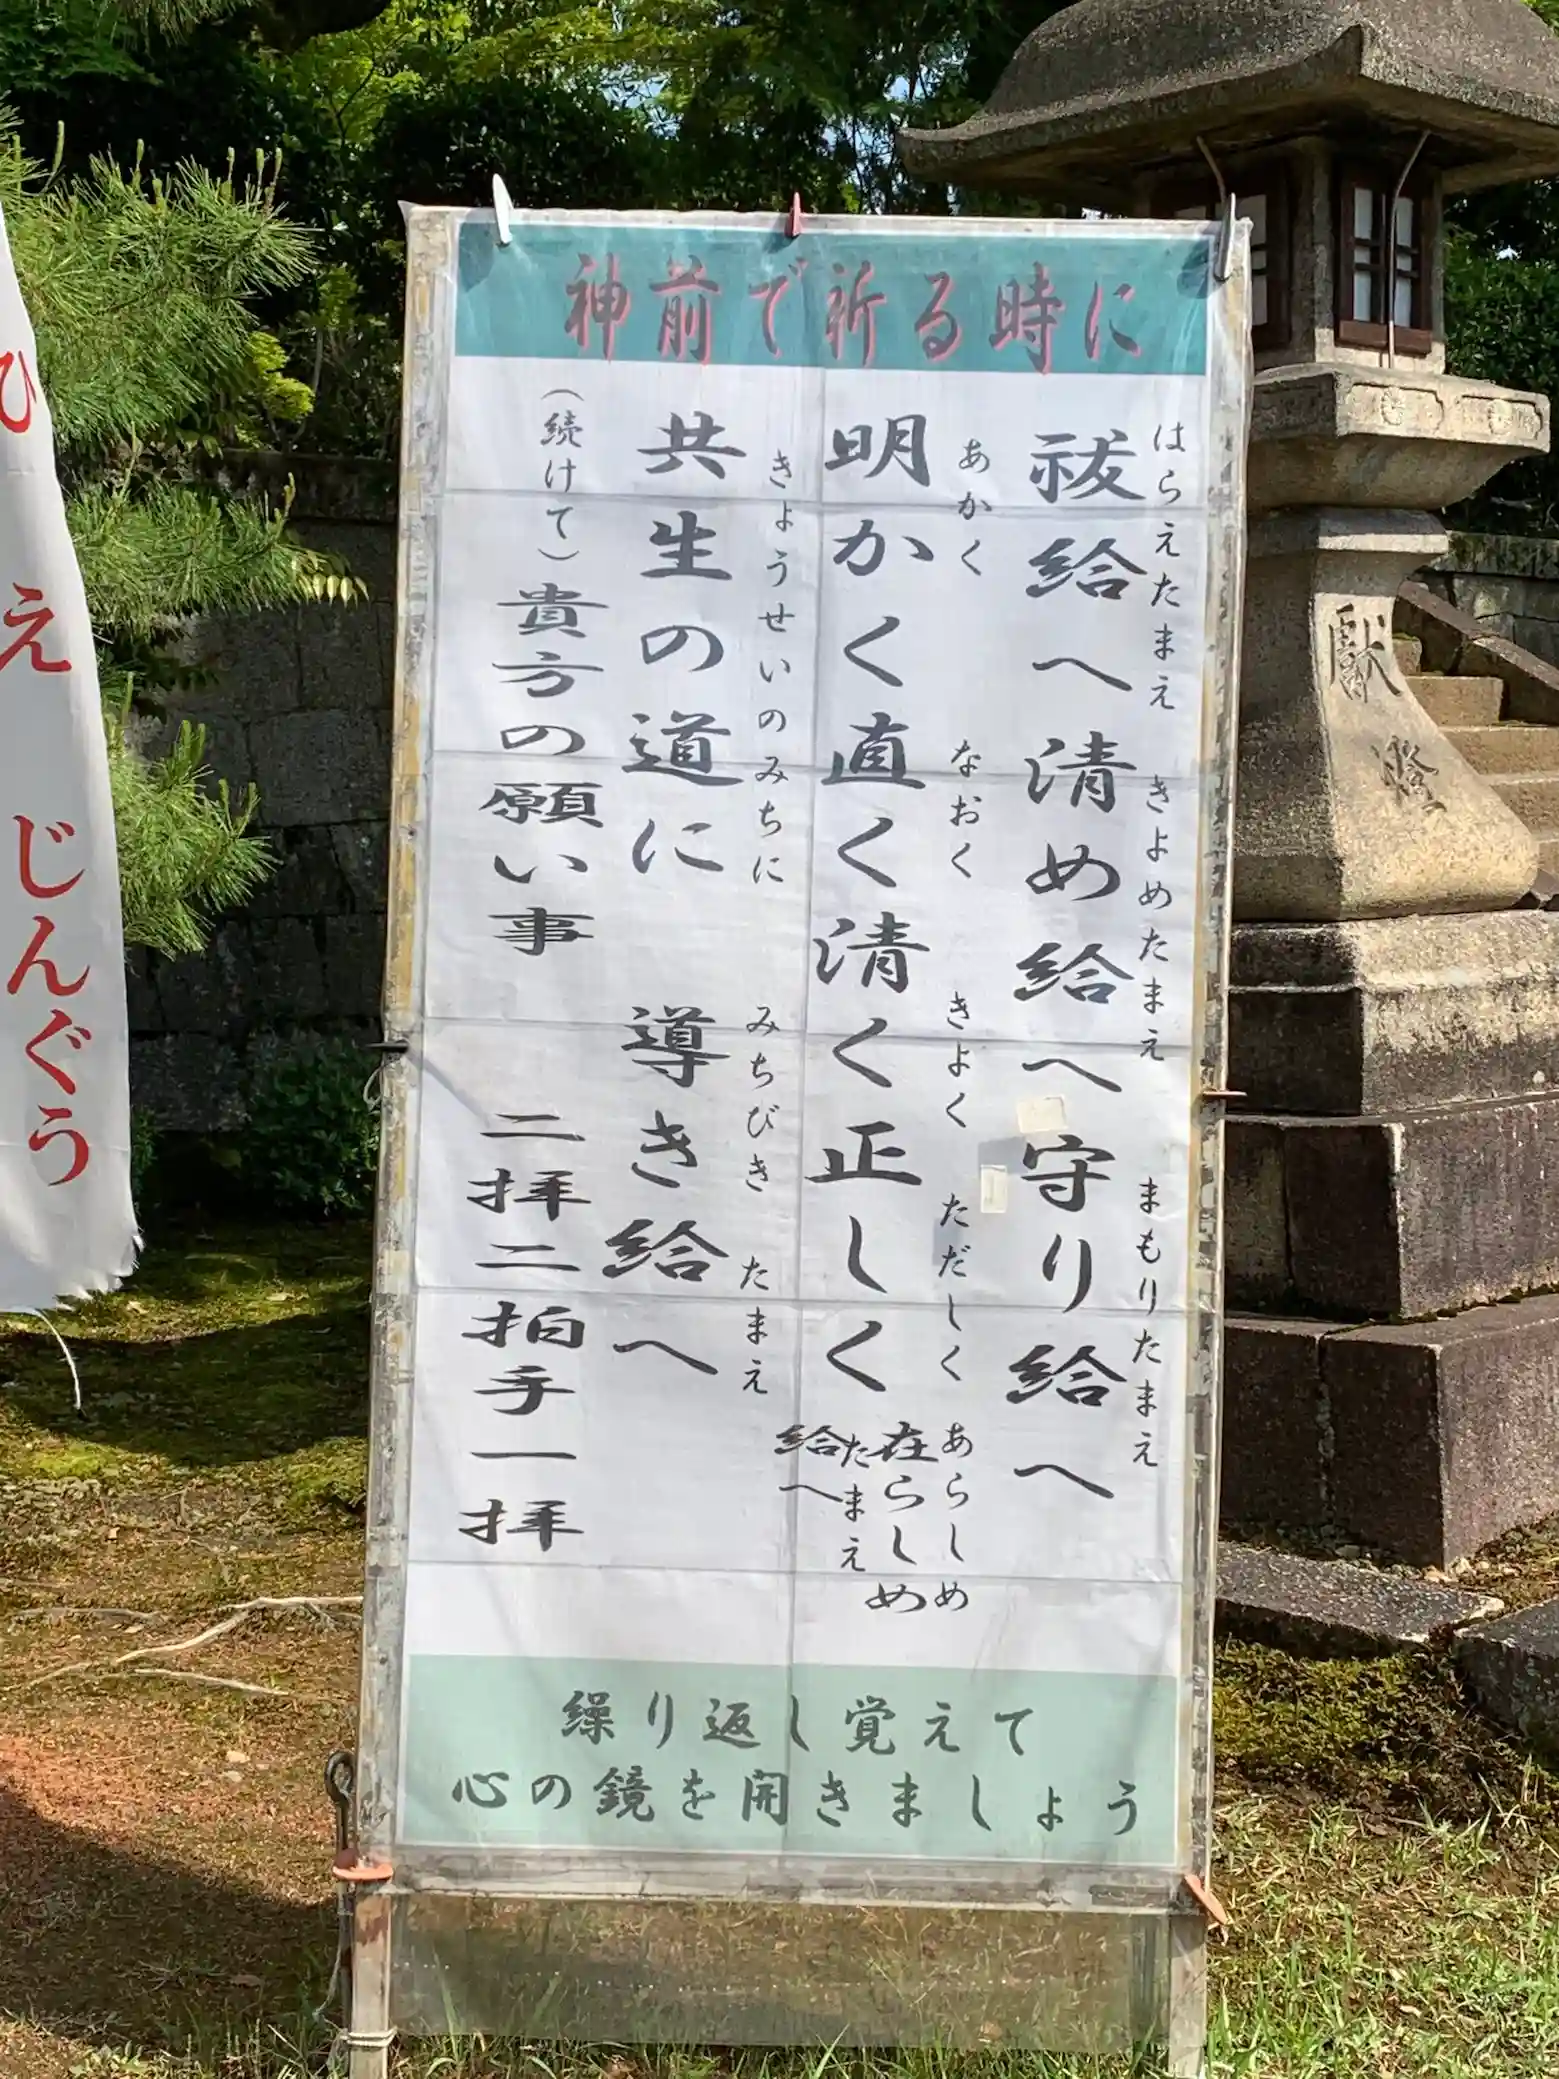 神前で祈る時に
はらえたまえ きよめたまえ まもりたまえ
祓給へ清め給へ守り給へ
あかく なおく きよく ただしく あらしめ たまえ
明かく直く清く正しく在らしめ給へ
きょうせいのみちに みちびき たまえ
共生の道に 導き給へ
(続けて)貴方の願い事 二拝二拍手一拝
繰り返し覚えて
心の鏡を開きましょう
献燈
ひえじんぐう